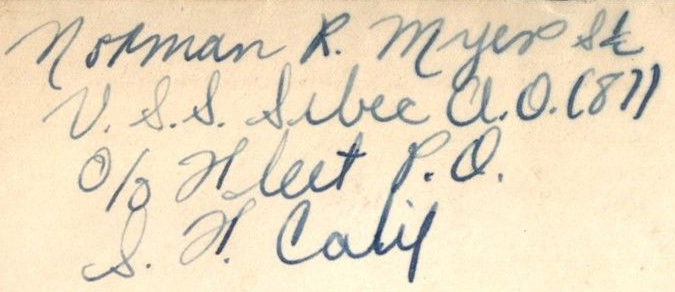 Norman R. Myers
U.S.S. Sebec A.O.(87)
c/o Fleet P.O.
S. F. Calif